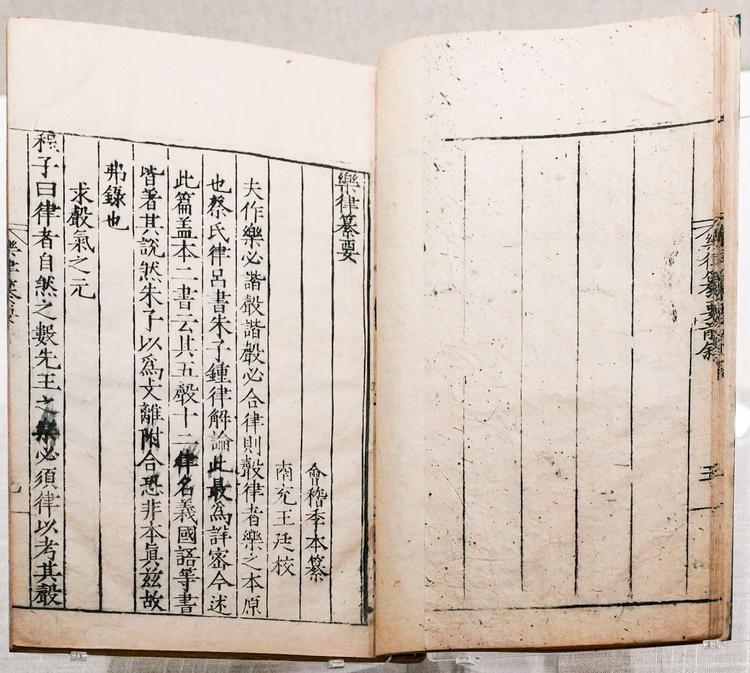 樂律纂要
樂律纂要
會稽季本纂
南充王廷校
夫作樂必諧聲諧聲必合律則聲律者樂之本原
也蔡氏律呂書朱子鍾律解論此最爲詳密今述
此篇盖本二書云其五聲十二律名義國語等書
皆著其說然朱子以爲支離附合恐非本眞兹故
弗錄也
求聲氣之元
程子曰律者自然之數先王之樂必須律以考其聲